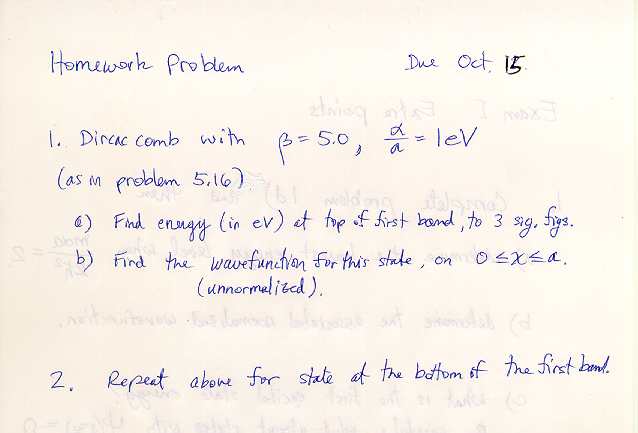 Homework Problem Due Oct. 15
1. Dircac comb with β = 5.0, α/a = 1eV
(as in problem 5.16)
a) Find energy (in eV) at top of first band, to 3 sig. figs.
b) Find the wavefunction for this state, on 0 ≤ x ≤ a.
(unnormalized).
2. Repeat above for state at the bottom of the first band.